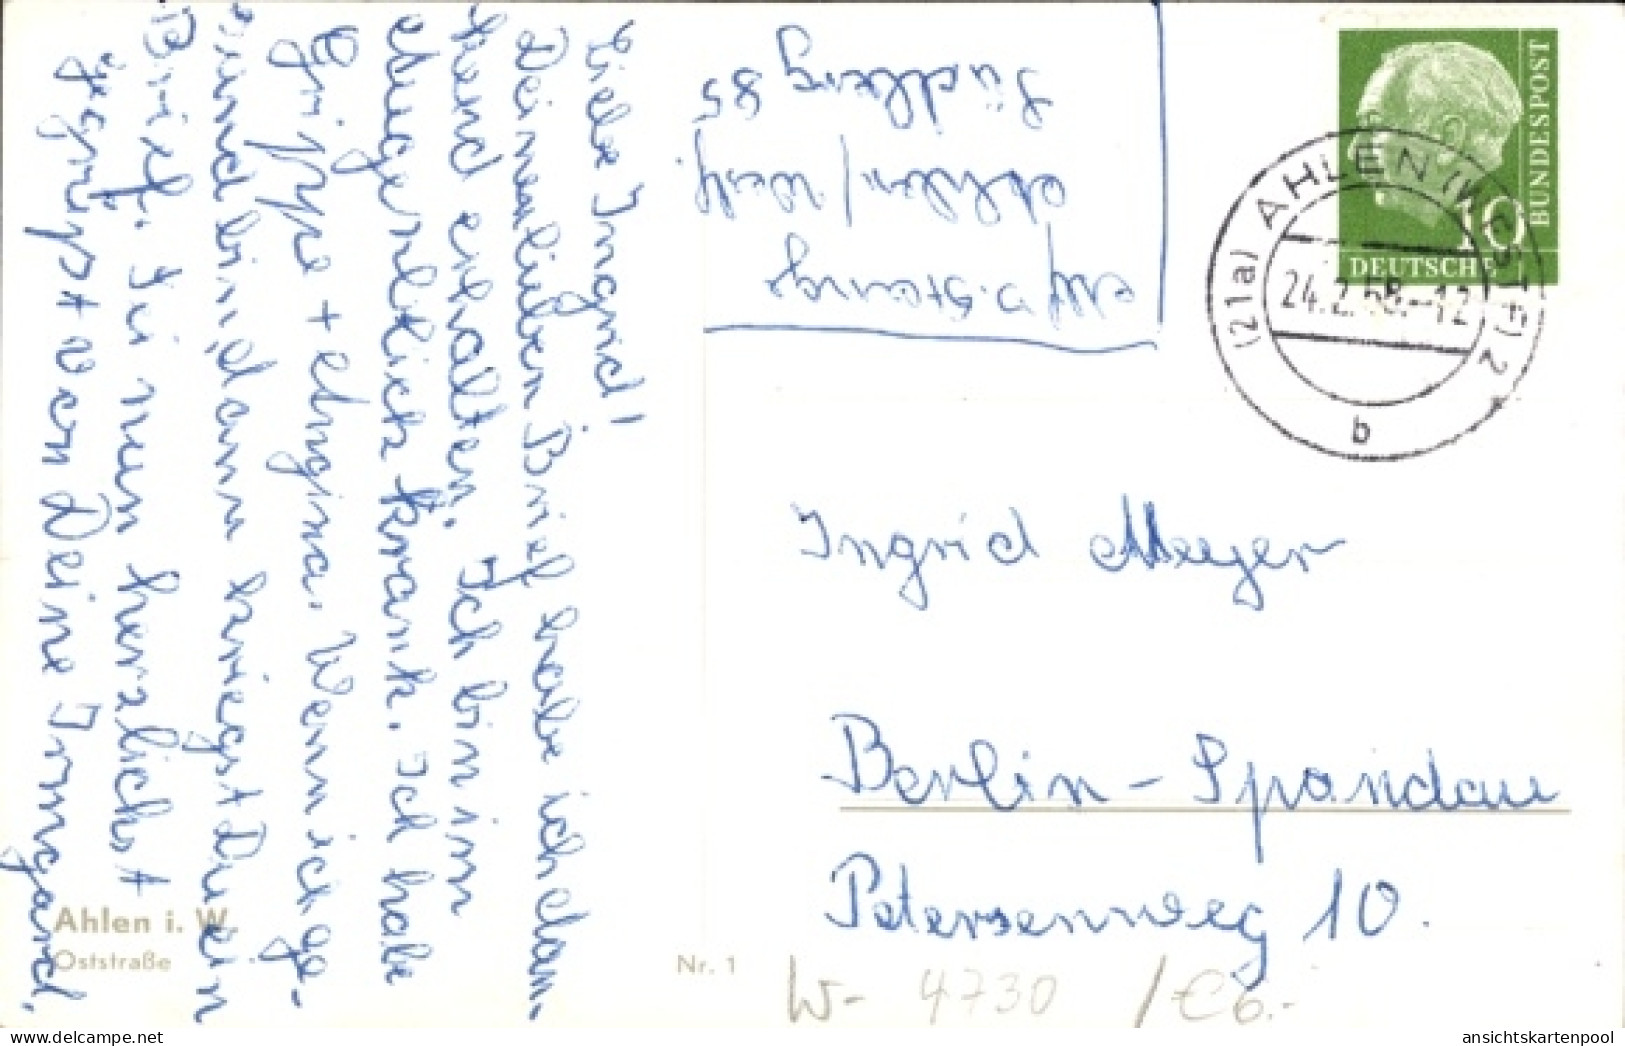 Liebe Ingrid!
Deinen lieben Brief habe ich dan-
kend erhalten. Ich bin im
augenblick krank. Ich habe
Grippe + Angina. Wenn ich ge-
sund bin, dann kriegst Du ein
Brief. Sei nun herzlichst
gegrüßt von Deine Irmgard.
Ahlen i. W.
Oststraße
Nr. 1
Abs. J. Stange
Ahlen / Westf.
Südberg 85
DEUTSCHE
BUNDESPOST
10
(21a) AHLEN (WESTF) 2
24.2.58.-12
b
Ingrid Meyer
Berlin - Spandau
Petersenweg 10.
W- 4730 / € 6.-
ansichtskartenpool